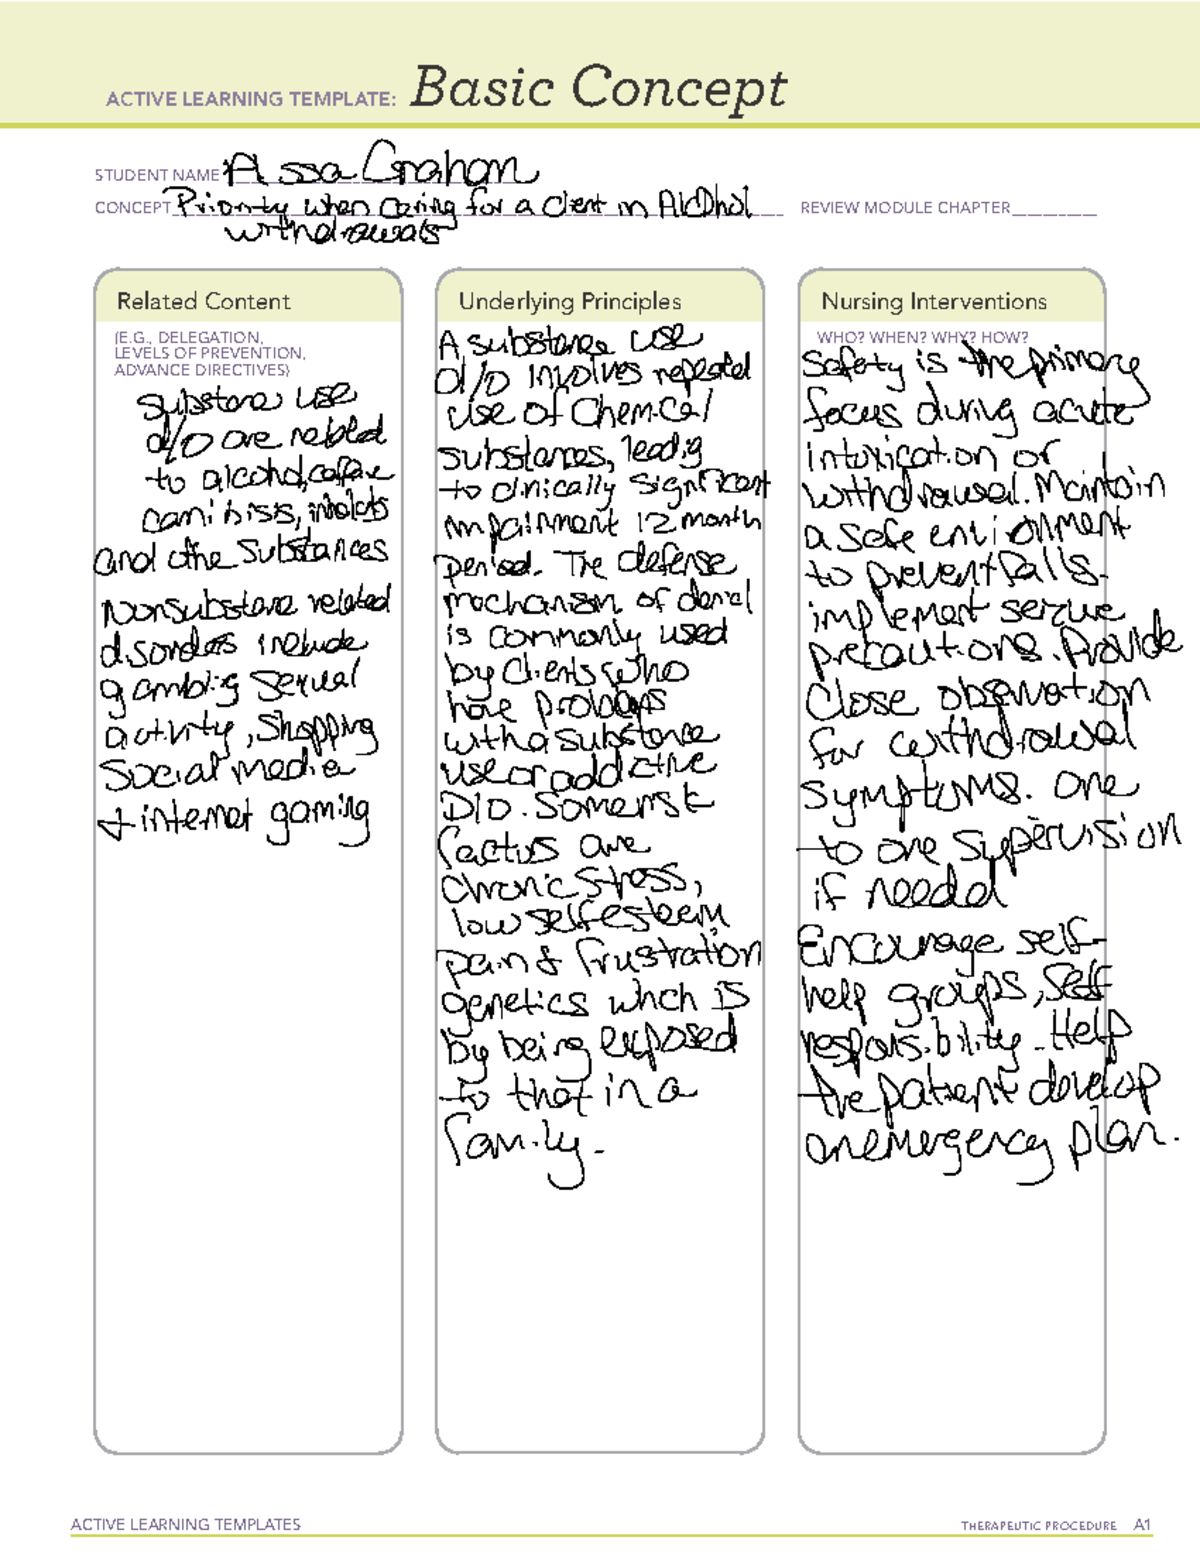 ACTIVE LEARNING TEMPLATE: Basic Concept
STUDENT NAME Assa Graham
CONCEPT Priority when caring for a client in Alcohol REVIEW MODULE CHAPTER
withdrawals
Related Content
(E.G., DELEGATION,
LEVELS OF PREVENTION,
ADVANCE DIRECTIVES)
substance use
d/o are related
to alcohol, caffeine
cannibiss, inhalants
and other substances
Nonsubstance related
disorders include
gambling sexual
activity, shopping
social media
& internet gaming
Underlying Principles
A substance use
d/o involves repeated
use of chemical
substances, leading
to clinically significant
impairment 12 month
period. The defense
mechanism of denial
is commonly used
by clients who
have problems
with a substance
use or addictive
D/O. Some risk
factors are
chronic stress,
low self esteem
pain & frustration
genetics which is
by being exposed
to that in a
family.
Nursing Interventions
WHO? WHEN? WHY? HOW?
Safety is the primary
focus during acute
intoxication or
withdrawal. Maintain
a safe environment
to prevent falls.
implement seizure
precautions. Provide
close observation
for withdrawal
symptoms. one
to one supervision
if needed
Encourage self-
help groups, self
responsibility. Help
the patient develop
an emergency plan.
ACTIVE LEARNING TEMPLATES
THERAPEUTIC PROCEDURE A1